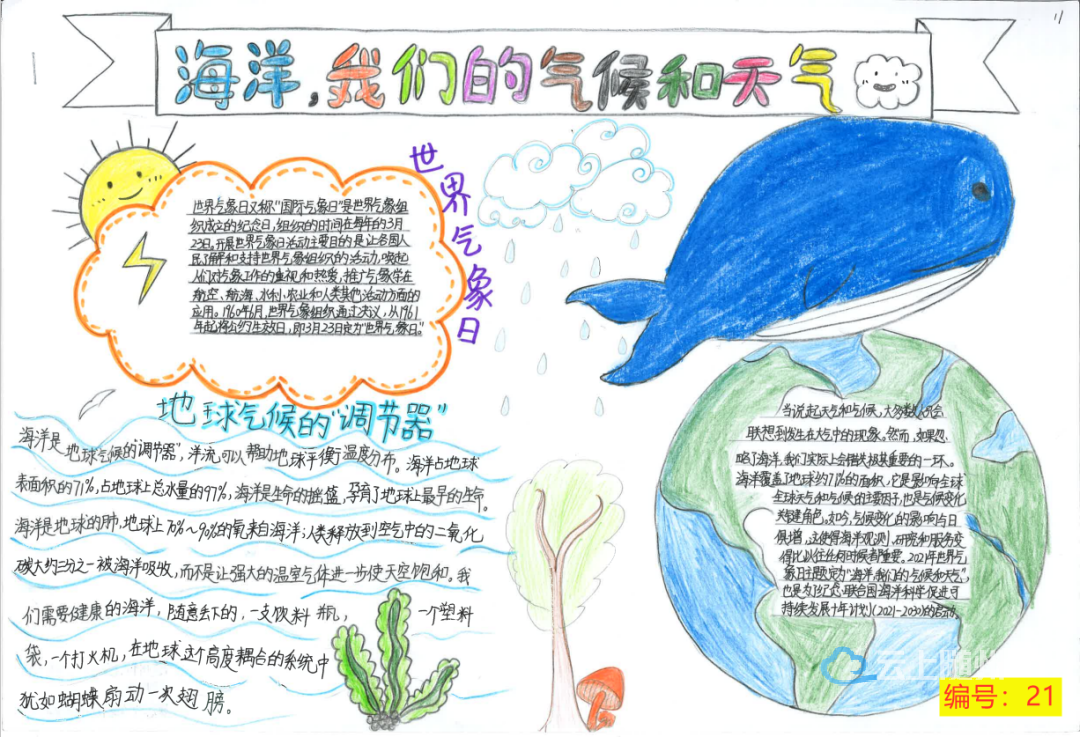 海洋,我们的气候和天气
世界气象日
世界气象日又称"国际气象日"是世界气象组
织成立的纪念日,组织的时间在每年的3月
23日。开展世界气象日活动主要目的是让各国人
民了解和支持世界气象组织的活动,唤起
人们对气象工作的重视和热爱,推广气象学在
航空、航海、水利、农业和人类其他活动方面的
应用。1960年6月,世界气象组织通过决议,从1961
年起将公约生效日,即3月23日定为"世界气象日。"
地球气候的"调节器"
海洋是地球气候的"调节器",洋流可以帮助地球平衡温度分布。海洋占地球
表面积的71%,占地球上总水量的97%,海洋是生命的摇篮,孕育了地球上最早的生命。
海洋是地球的肺,地球上70%~90%的氧来自海洋;人类释放到空气中的二氧化
碳大约三分之一被海洋吸收,而不是让强大的温室气体进一步使天空饱和。我
们需要健康的海洋,随意丢下的,一支饮料瓶,一个塑料
袋,一个打火机,在地球这个高度耦合的系统中
犹如蝴蝶扇动一次翅膀。
当说起天气和气候,大多数人只会
联想到发生在大气中的现象。然而,如果忽
略了海洋,我们实际上会错失极其重要的一环。
海洋覆盖了地球约71%的面积,它是影响全球
全球天气和气候的主要因子,也是气候变化
关键角色。如今,气候变化的影响与日
俱增,这使得海洋观测、研究和服务变
得比以往任何时候都重要。2021年世界气
象日主题定为"海洋,我们的气候和天气",
也是为了纪念联合国海洋科学促进可
持续发展十年计划(2021-2030)的启动。
云上随州
编号:21